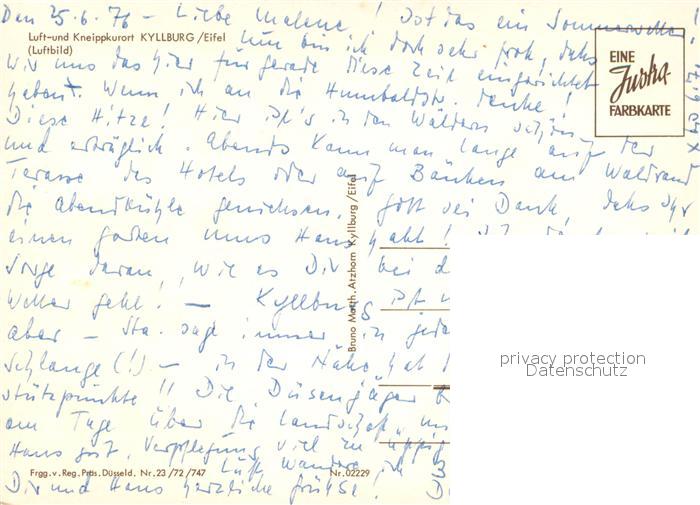 Den 25.6.76 - Liebe Malene! Ist das ein Sommerwetter!
Luft-und Kneippkurort KYLLBURG /Eifel
(Luftbild)
Nun bin ich doch sehr froh, dass
wir uns das hier für gerade diese Zeit eingerichtet
haben. Wenn ich an die Humboldtstr. denke!
EINE
Juska-
FARBKARTE
Diese Hitze! Hier ist's in den Wäldern schön
und erträglich. Abends kann man lange auf der
Terasse des Hotels oder auf Bänken am Waldrand
die Abendkühle geniessen. Gott sei Dank, dass Ihr
einen Garten ums Haus habt!
Sorge daran, wie es Dir bei d
Wetter geht. - Kyllburg ist
aber - sage immer in jeder
Schlange (!) - in der Nähe hat
stützpunkte!! Die Düsenjäger
am Tage über die Landschaft,
Haus gut, Verpflegung viel zu üppig
Frgg. v. Reg. Präs. Düsseld. Nr. 23 /72 /747
Nr. 02229
Luft, Wandern
Dir und Hans herzliche Grüsse!
Bruno Matth. Atzhorn Kyllburg /Eifel
privacy protection
Datenschutz